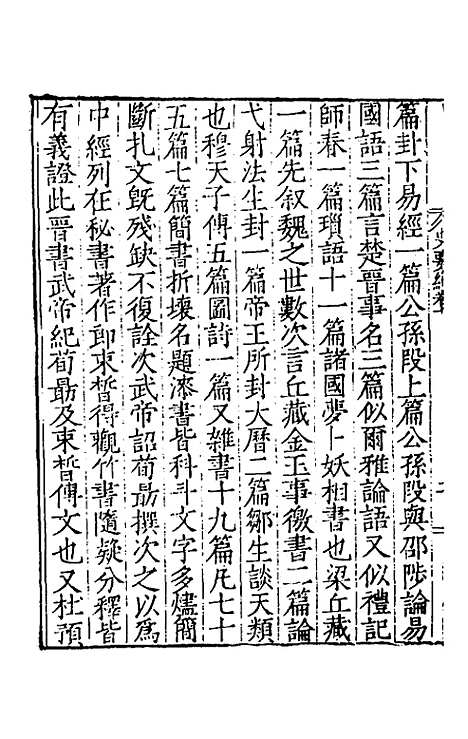 篇封下易經一篇公孫段上篇公孫段與邵陟論易
國語三篇言楚晉事名三篇似爾雅論語又似禮記
師春一篇瑣語十一篇諸國夢卜妖相書也梁丘藏
一篇先叙魏之世數次言丘藏金玉事徼書二篇論
弋射法生封一篇帝王所封大曆二篇鄒生談天類
也穆天子傳五篇圖詩一篇又雜書十九篇凡七十
五篇七篇簡書折壞名題漆書皆科斗文字多燼簡
斷扎文旣殘缺不復詮次武帝詔荀勗撰次之以爲
中經列在秘書著作郎束晳得觀竹書隨疑分釋皆
有義證此晉書武帝紀荀勗及束晳傳文也又杜預